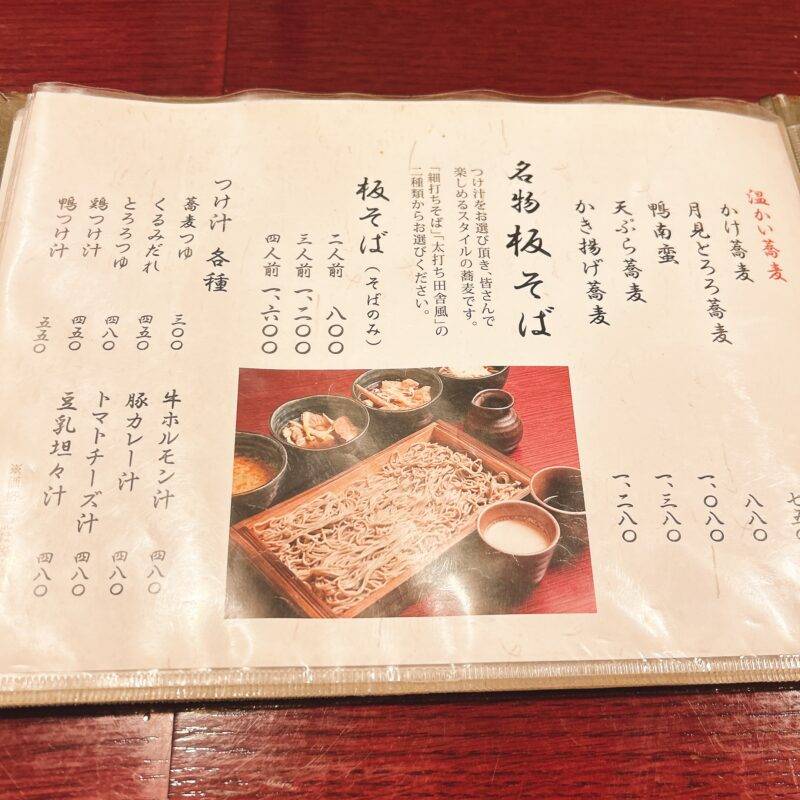 温かい蕎麦
かけ蕎麦 七五〇
月見とろろ蕎麦 八八〇
鴨南蛮 一、〇八〇
天ぷら蕎麦 一、三八〇
かき揚げ蕎麦 一、二八〇
名物 板そば
つけ汁をお選び頂き、皆さんで
楽しめるスタイルの蕎麦です。
「細打ちそば」「太打ち田舎風」の
二種類からお選びください。
板そば（そばのみ）
二人前 八〇〇
三人前 一、二〇〇
四人前 一、六〇〇
つけ汁 各種
蕎麦つゆ 三〇〇
くるみだれ 四五〇
とろろつゆ 四八〇
鶏つけ汁 四五〇
鴨つけ汁 五五〇
牛ホルモン汁 四八〇
豚カレー汁 四八〇
トマトチーズ汁 四八〇
豆乳坦々汁 四八〇